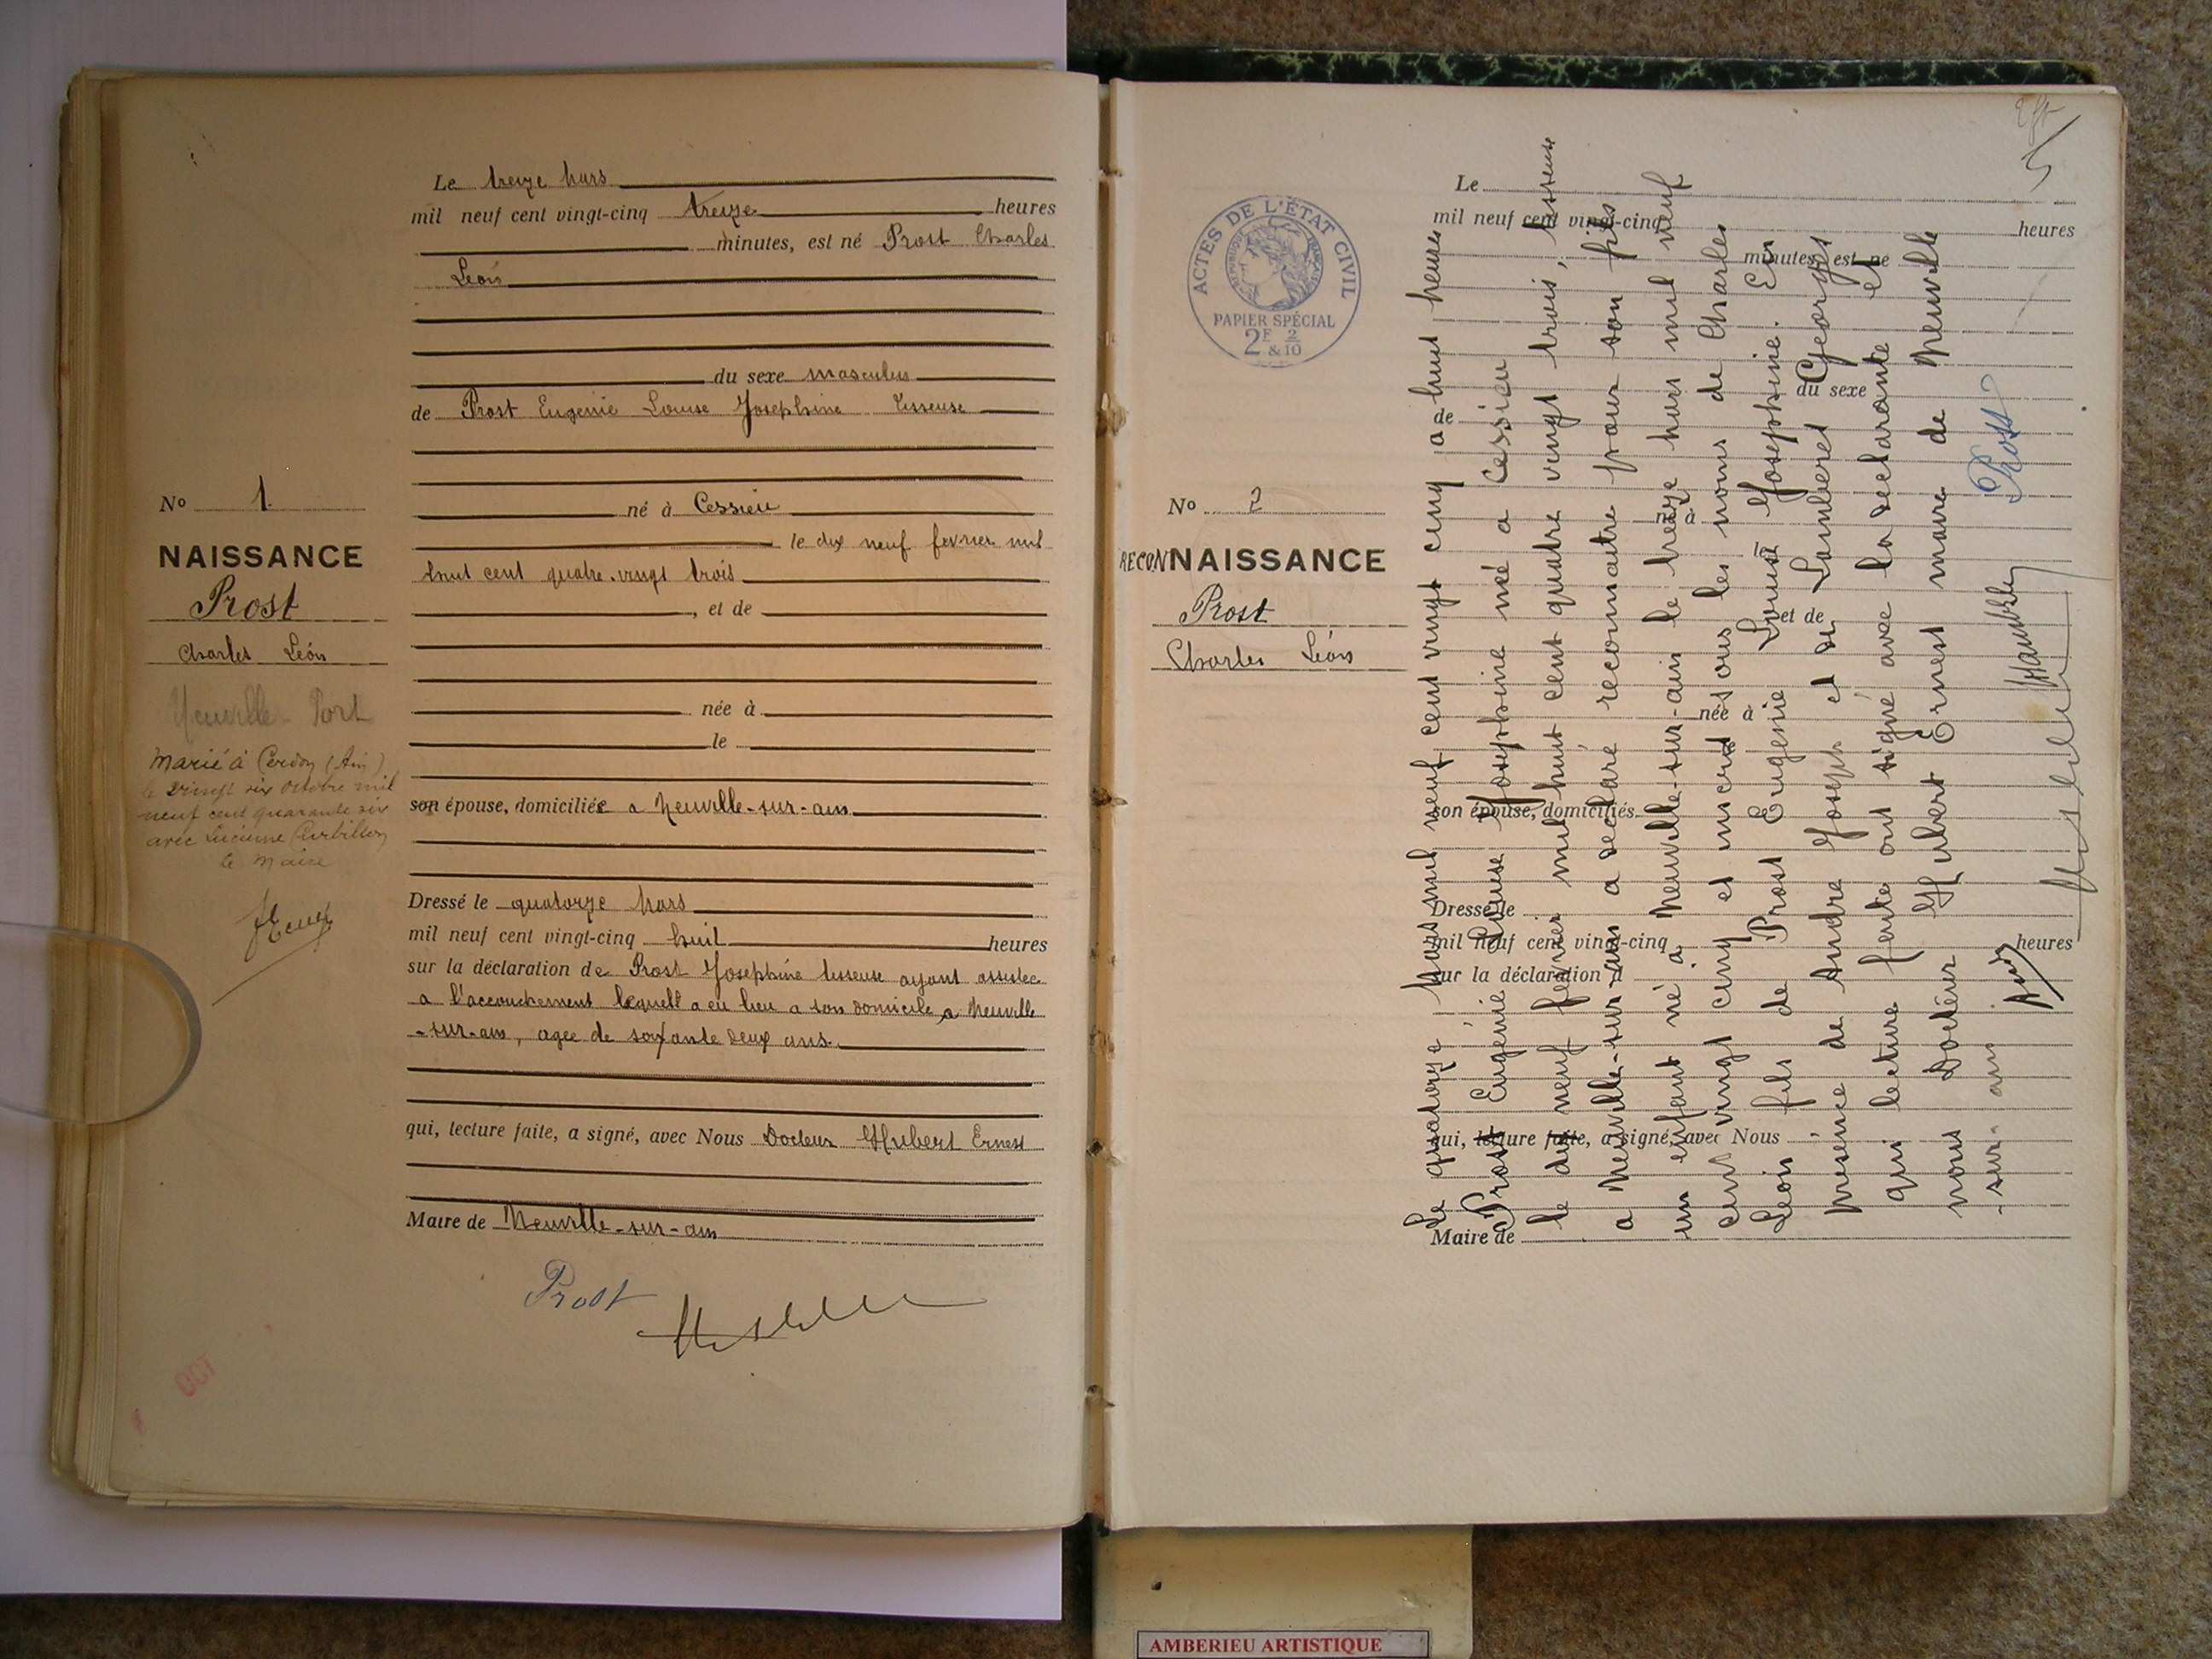 Le treize Mars
mil neuf cent vingt-cinq treize heures
minutes, est né Prost Charles
Léon
du sexe masculin
de Prost Eugenie Louise Josephine tisseuse
né à Cessieu
le dix neuf fevrier mil
huit cent quatre-vingt trois
, et de
née à
le
son épouse, domiciliée a Neuville-sur-ain
Dressé le quatorze Mars
mil neuf cent vingt-cinq huit heures
sur la déclaration de Prost Josephine tisseuse ayant assistée
a l'accouchement lequell a eu lieu a son domicile a Neuville
-sur-ain, agee de soixante deux ans.
qui, lecture faite, a signé, avec Nous Docteur Hubert Ernest
Maire de Neuville-sur-ain
Prost
No 1
NAISSANCE
Prost
Charles Léon
Neuville Port
Marié à Cerdon (Ain)
le vingt six Octobre mil
neuf cent quarante six
avec Lucienne
le Maire
OCT
ACTES DE L'ÉTAT CIVIL
RÉPUBLIQUE FRANÇAISE
PAPIER SPÉCIAL
2F 2
& 10
No 2
RECONNAISSANCE
Prost
Charles Léon
Le
mil neuf cent vingt-cinq heures
minutes, est né
du sexe
de
né à
le
et de
née à
son épouse, domiciliés
Dressé le
mil neuf cent vingt-cinq heures
sur la déclaration d
qui, lecture faite, a signé, avec Nous
Maire de
Le quatorze Mars mil neuf cent vingt cinq a huit heures
Prost Eugénie Louise Josephine née a Cessieu
le dix neuf fevrier mil huit cent quatre vingt trois, tisseuse
a Neuville-sur-ain a declaré reconnaitre pour son fils
un enfant né a Neuville-sur-ain le treize Mars mil neuf
cent vingt cinq et inscrit sous les noms de Charles
Léon fils de Prost Eugénie Louise Josephine. En
présence de André Joseph et de Lamberet Georges
qui lecture faite ont signé avec la declarante et
nous Docteur Hubert Ernest maire de Neuville
-sur-ain
Prost
AMBERIEU ARTISTIQUE